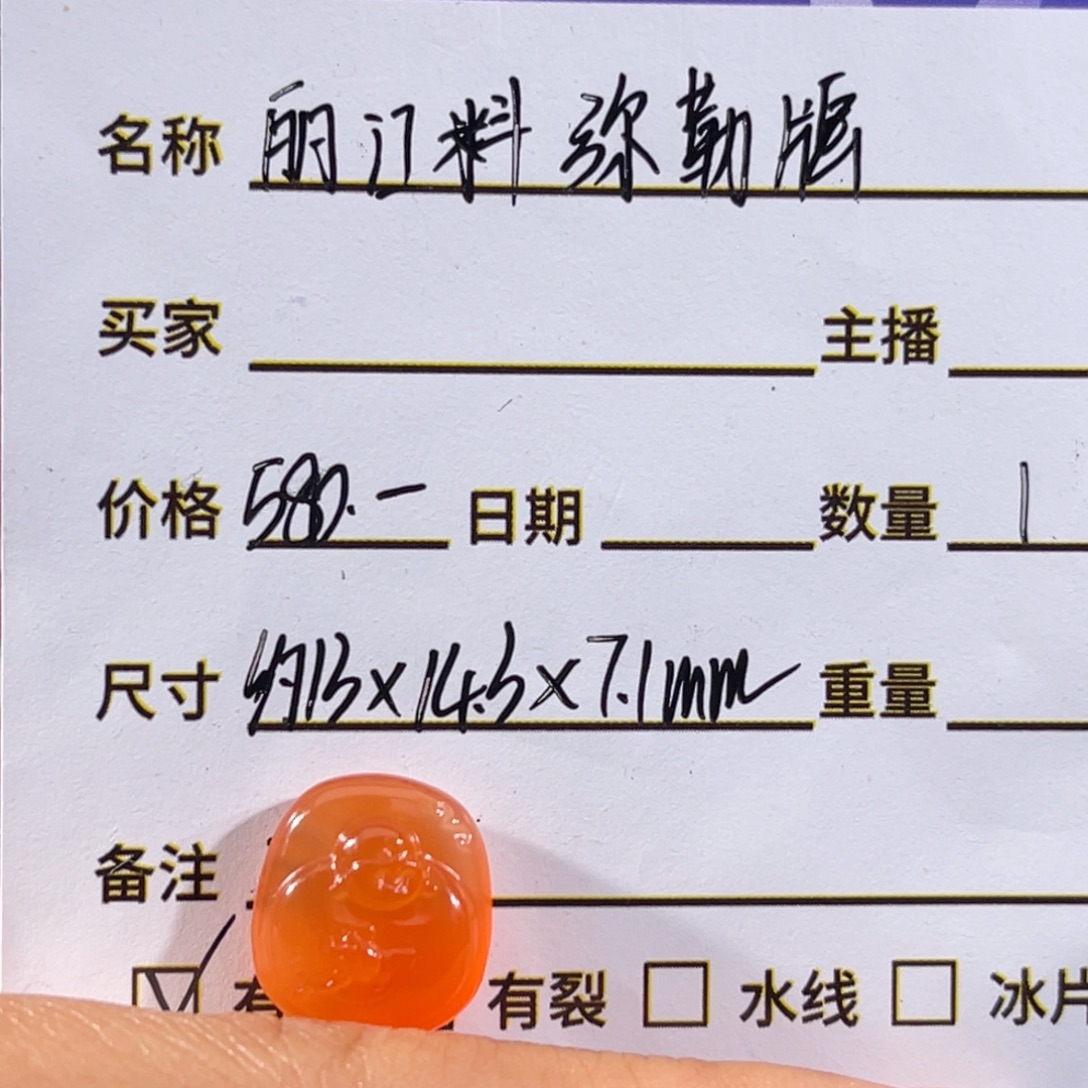 名称 丽江料 弥勒牌
买家 主播
价格 580.- 日期 数量 1
尺寸 约13×14.3×7.1mm 重量
备注
有 有裂 水线 冰片